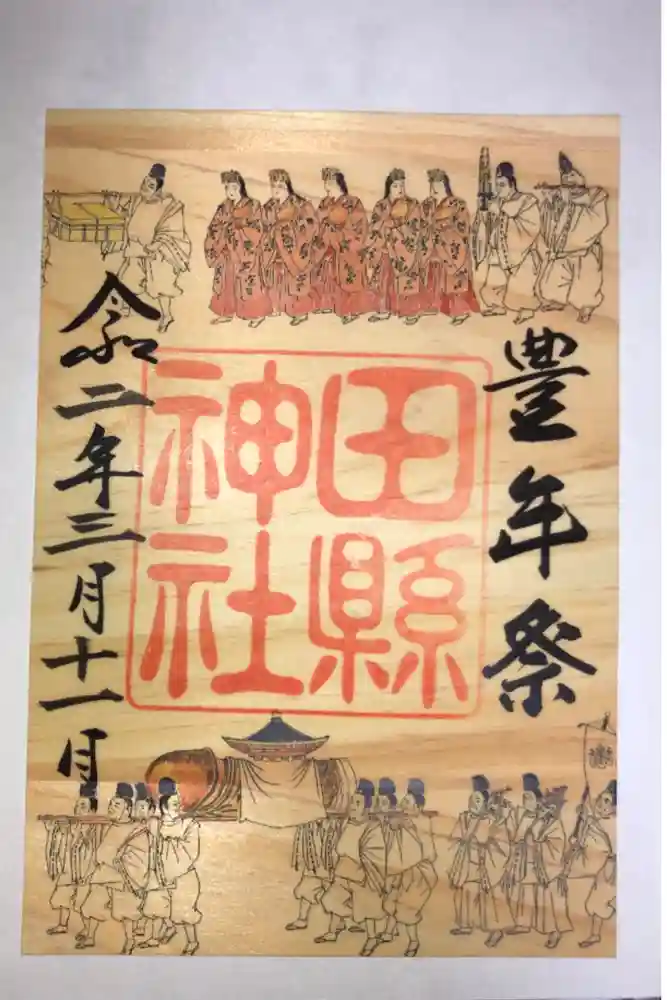 豊年祭
田縣
神社
令和二年三月十一日